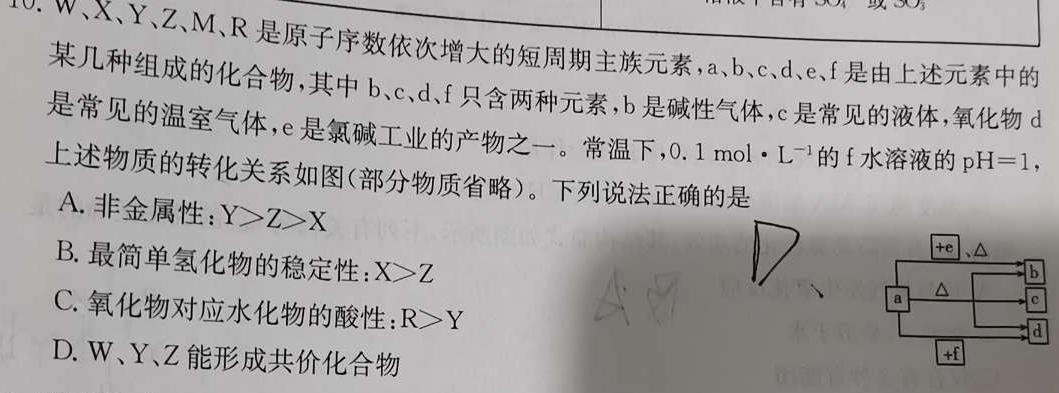 10. W、X、Y、Z、M、R 是原子序数依次增大的短周期主族元素,a、b、c、d、e、f 是由上述元素中的
某几种组成的化合物,其中 b、c、d、f 只含两种元素,b 是碱性气体,c 是常见的液体,氧化物 d
是常见的温室气体,e 是氯碱工业的产物之一。常温下,0.1 mol·L⁻¹的 f 水溶液的 pH=1,
上述物质的转化关系如图(部分物质省略)。下列说法正确的是
A. 非金属性:Y>Z>X
B. 最简单氢化物的稳定性:X>Z
C. 氧化物对应水化物的酸性:R>Y
D. W、Y、Z 能形成共价化合物
D
+e 、△
b
a △ c
d
+f